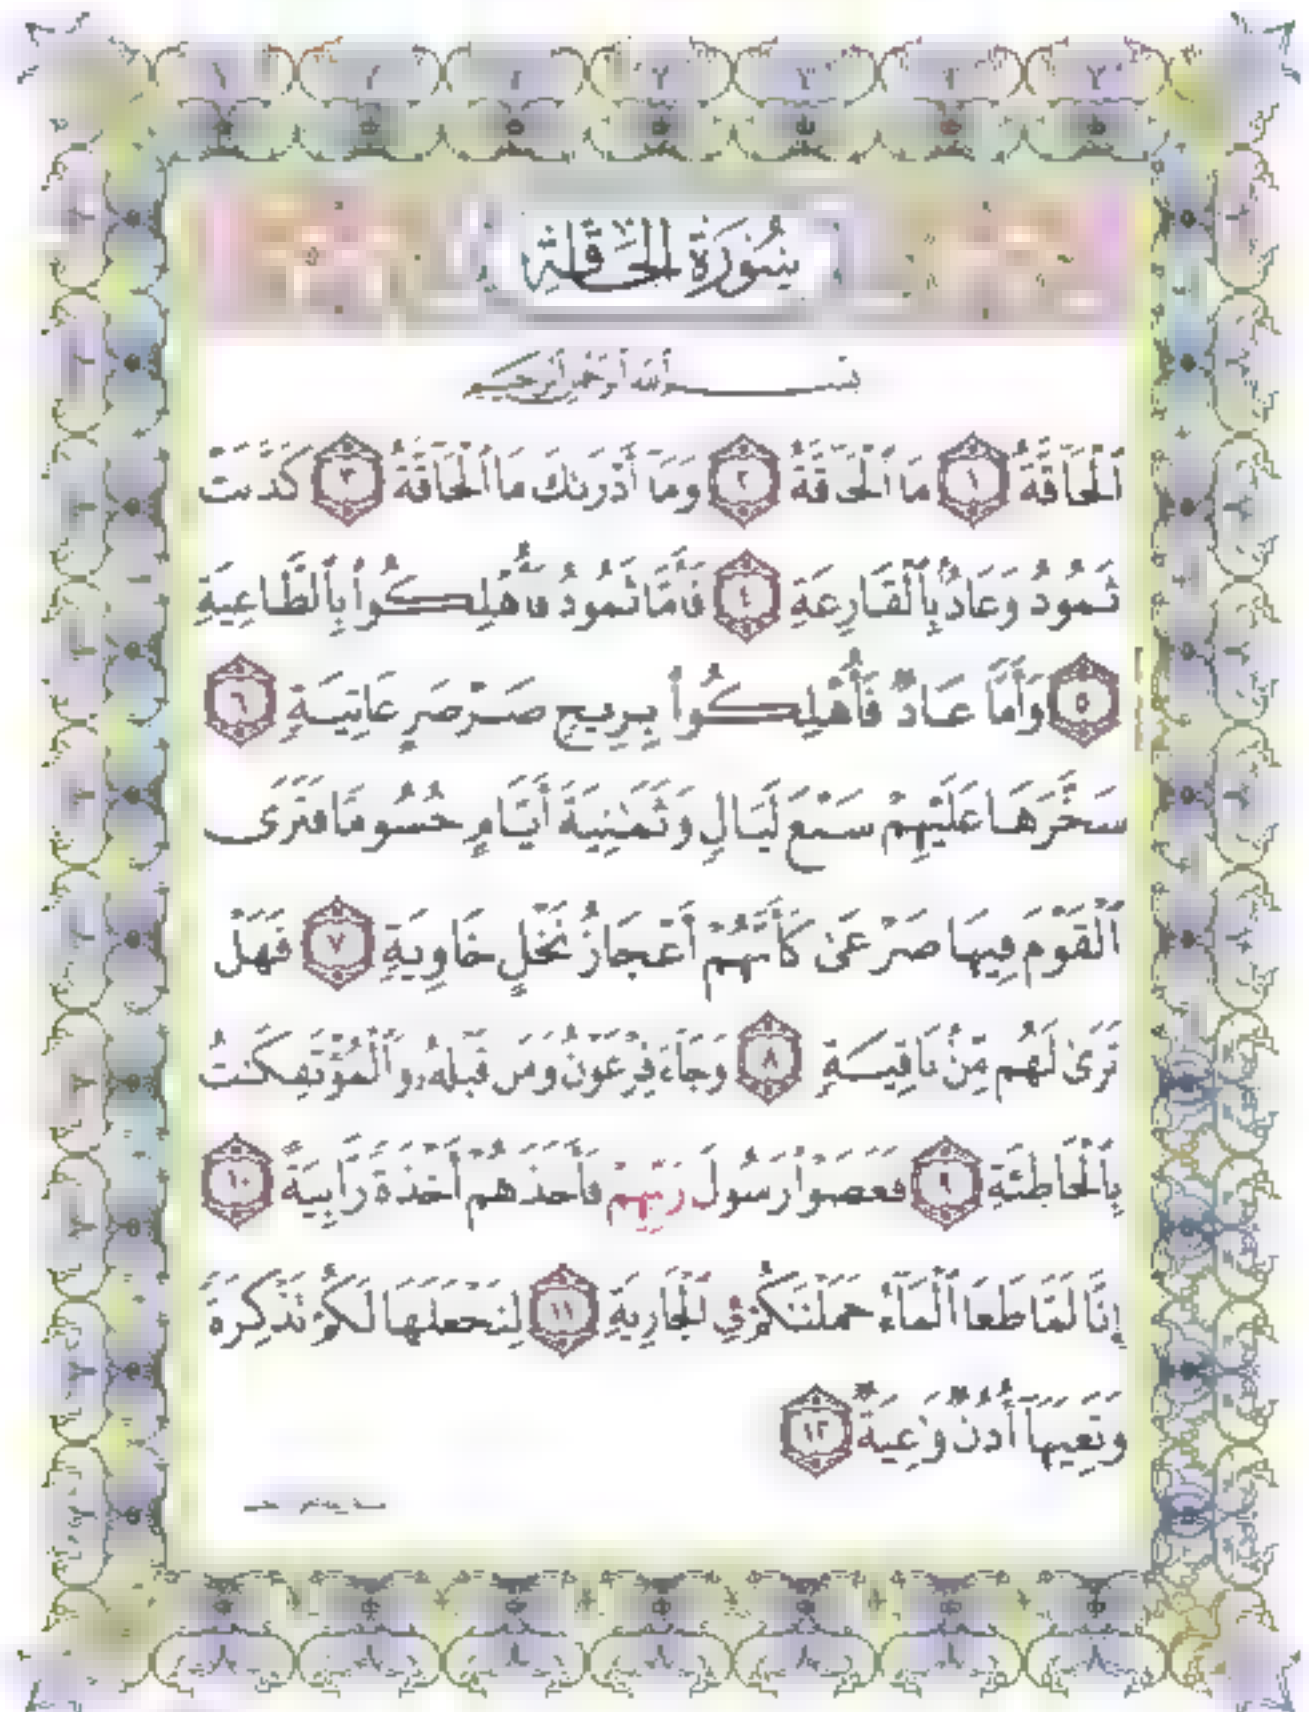 سُورَةُ الحَاقَّة
بِسْمِ ٱللَّهِ ٱلرَّحْمَٰنِ ٱلرَّحِيمِ
ٱلْحَآقَّةُ ١ مَا ٱلْحَآقَّةُ ٢ وَمَآ أَدْرَىٰكَ مَا ٱلْحَآقَّةُ ٣ كَذَّبَتْ
ثَمُودُ وَعَادٌۢ بِٱلْقَارِعَةِ ٤ فَأَمَّا ثَمُودُ فَأُهْلِكُوا۟ بِٱلطَّاغِيَةِ
٥ وَأَمَّا عَادٌ فَأُهْلِكُوا۟ بِرِيحٍ صَرْصَرٍ عَاتِيَةٍ ٦
سَخَّرَهَا عَلَيْهِمْ سَبْعَ لَيَالٍ وَثَمَٰنِيَةَ أَيَّامٍ حُسُومًا فَتَرَى
ٱلْقَوْمَ فِيهَا صَرْعَىٰ كَأَنَّهُمْ أَعْجَازُ نَخْلٍ خَاوِيَةٍ ٧ فَهَلْ
تَرَىٰ لَهُم مِّنۢ بَاقِيَةٍ ٨ وَجَآءَ فِرْعَوْنُ وَمَن قَبْلَهُۥ وَٱلْمُؤْتَفِكَٰتُ
بِٱلْخَاطِئَةِ ٩ فَعَصَوْا۟ رَسُولَ رَبِّهِمْ فَأَخَذَهُمْ أَخْذَةً رَّابِيَةً ١٠
إِنَّا لَمَّا طَغَا ٱلْمَآءُ حَمَلْنَٰكُمْ فِى ٱلْجَارِيَةِ ١١ لِنَجْعَلَهَا لَكُمْ تَذْكِرَةً
وَتَعِيَهَآ أُذُنٌ وَٰعِيَةٌ ١٢